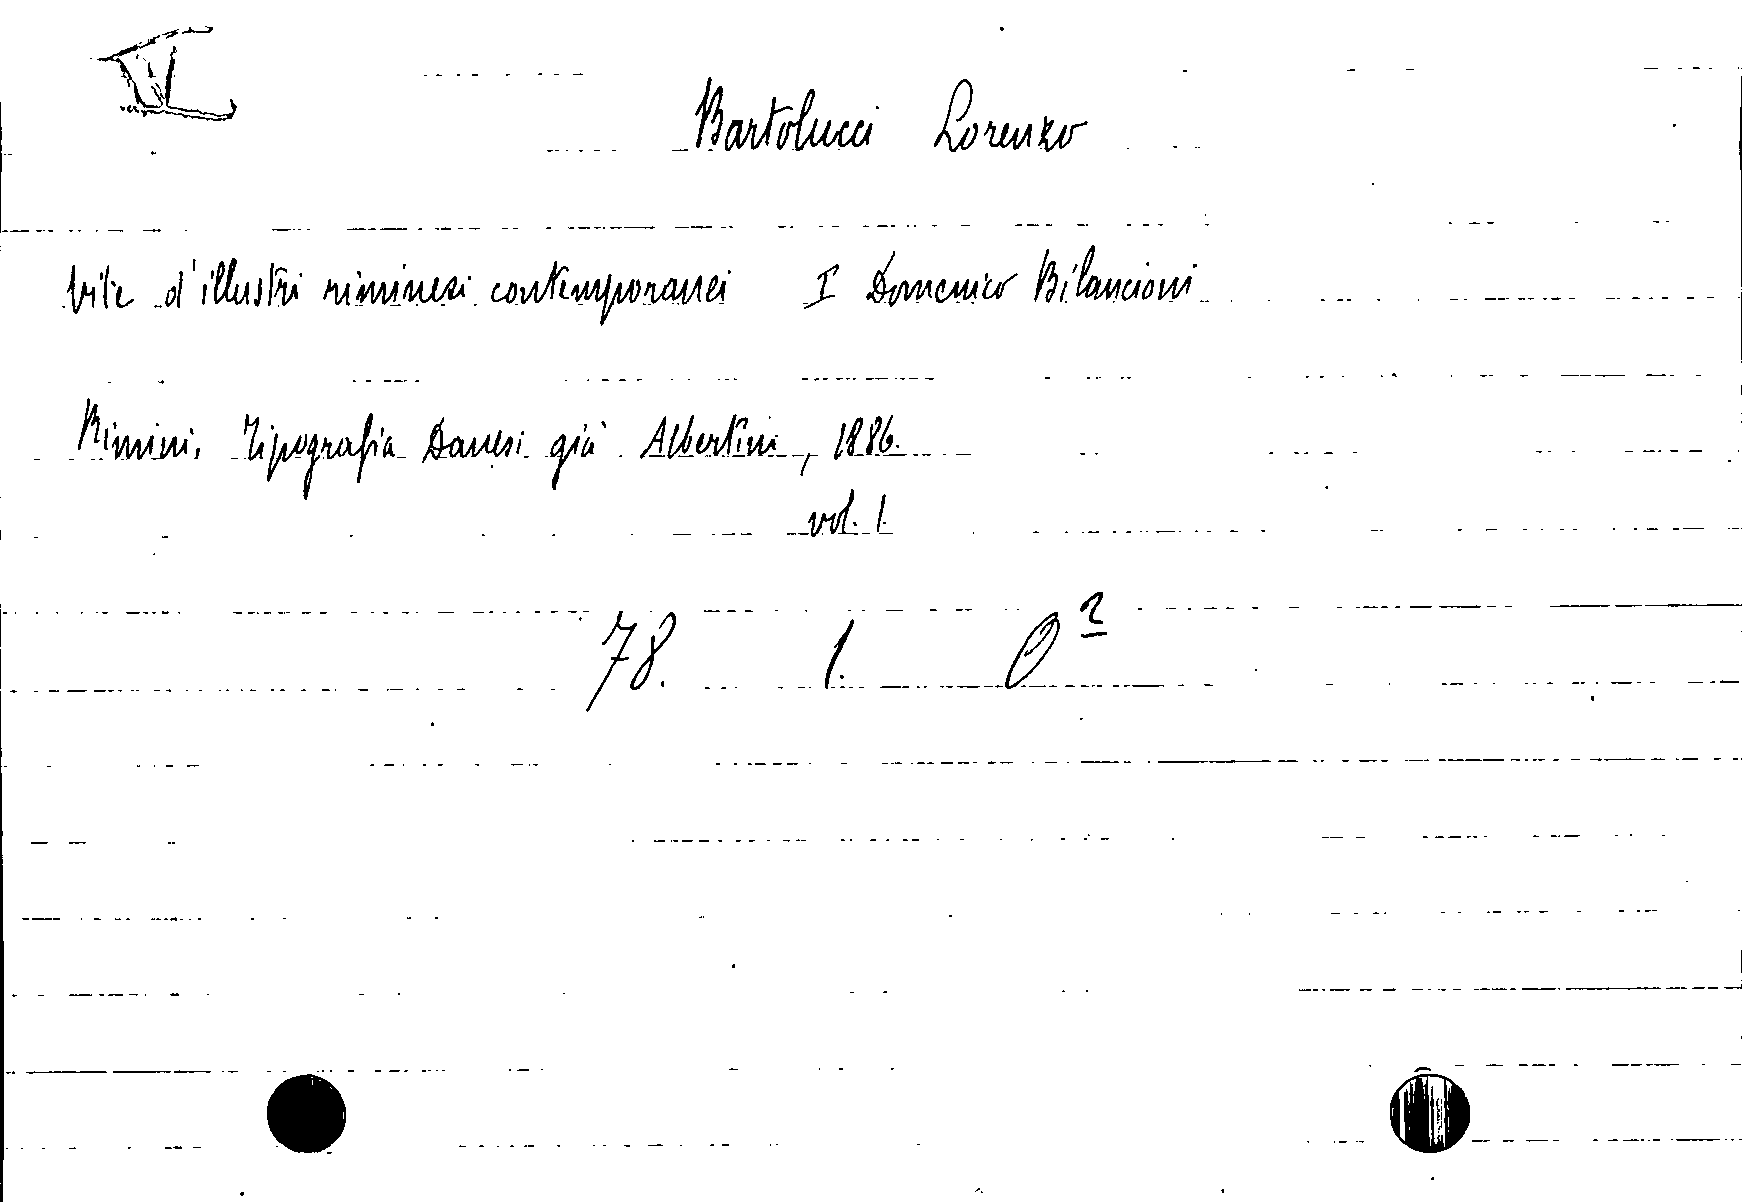 V
Bartolucci Lorenzo
Vite d'illustri riminesi contemporanei I Domenico Bilancioni
Rimini, Tipografia Danesi già Albertini, 1886.
vol. 1.
78. 1. O²